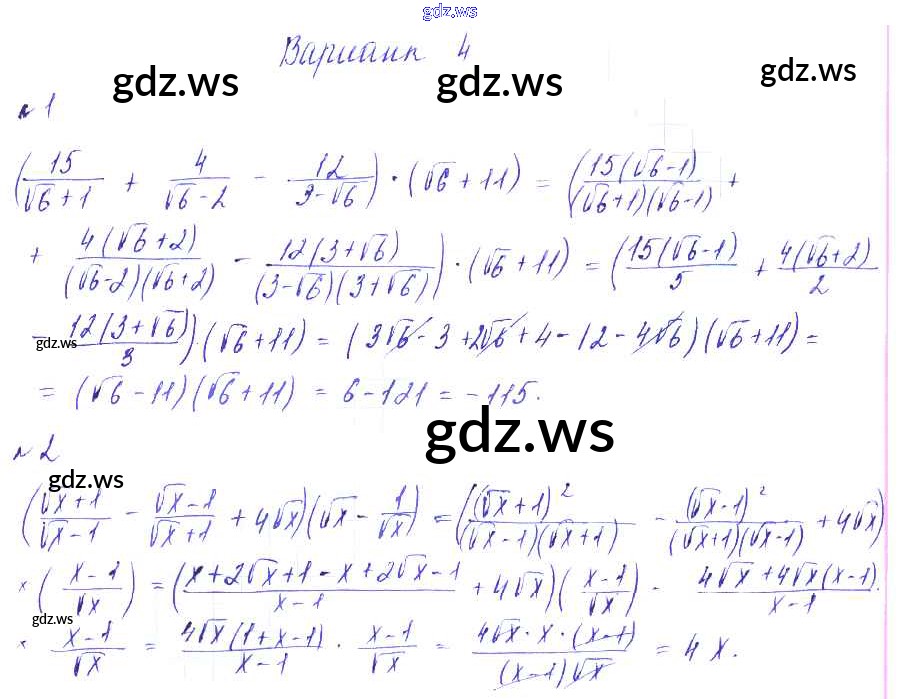 gdz.ws
Вариант 4
gdz.ws gdz.ws gdz.ws
№1
(15/(√6+1) + 4/(√6-2) - 12/(3-√6)) · (√6+11) = (15(√6-1)/((√6+1)(√6-1)) +
+ 4(√6+2)/((√6-2)(√6+2)) - 12(3+√6)/((3-√6)(3+√6))) · (√6+11) = (15(√6-1)/5 + 4(√6+2)/2
- 12(3+√6)/3)(√6+11) = (3√6 - 3 + 2√6 + 4 - 12 - 4√6)(√6+11) =
gdz.ws
= (√6-11)(√6+11) = 6-121 = -115.
gdz.ws
№2
gdz.ws
((√x+1)/(√x-1) - (√x-1)/(√x+1) + 4√x)(√x - 1/√x) = ((√x+1)²/((√x-1)(√x+1)) - (√x-1)²/((√x+1)(√x-1)) + 4√x)
× ((x-1)/√x) = ((x+2√x+1-x+2√x-1)/(x-1) + 4√x)((x-1)/√x) - (4√x+4√x(x-1))/(x-1) ·
gdz.ws
× (x-1)/√x = 4√x(1+x-1)/(x-1) · (x-1)/√x = 4√x·x·(x-1)/((x-1)√x) = 4x.